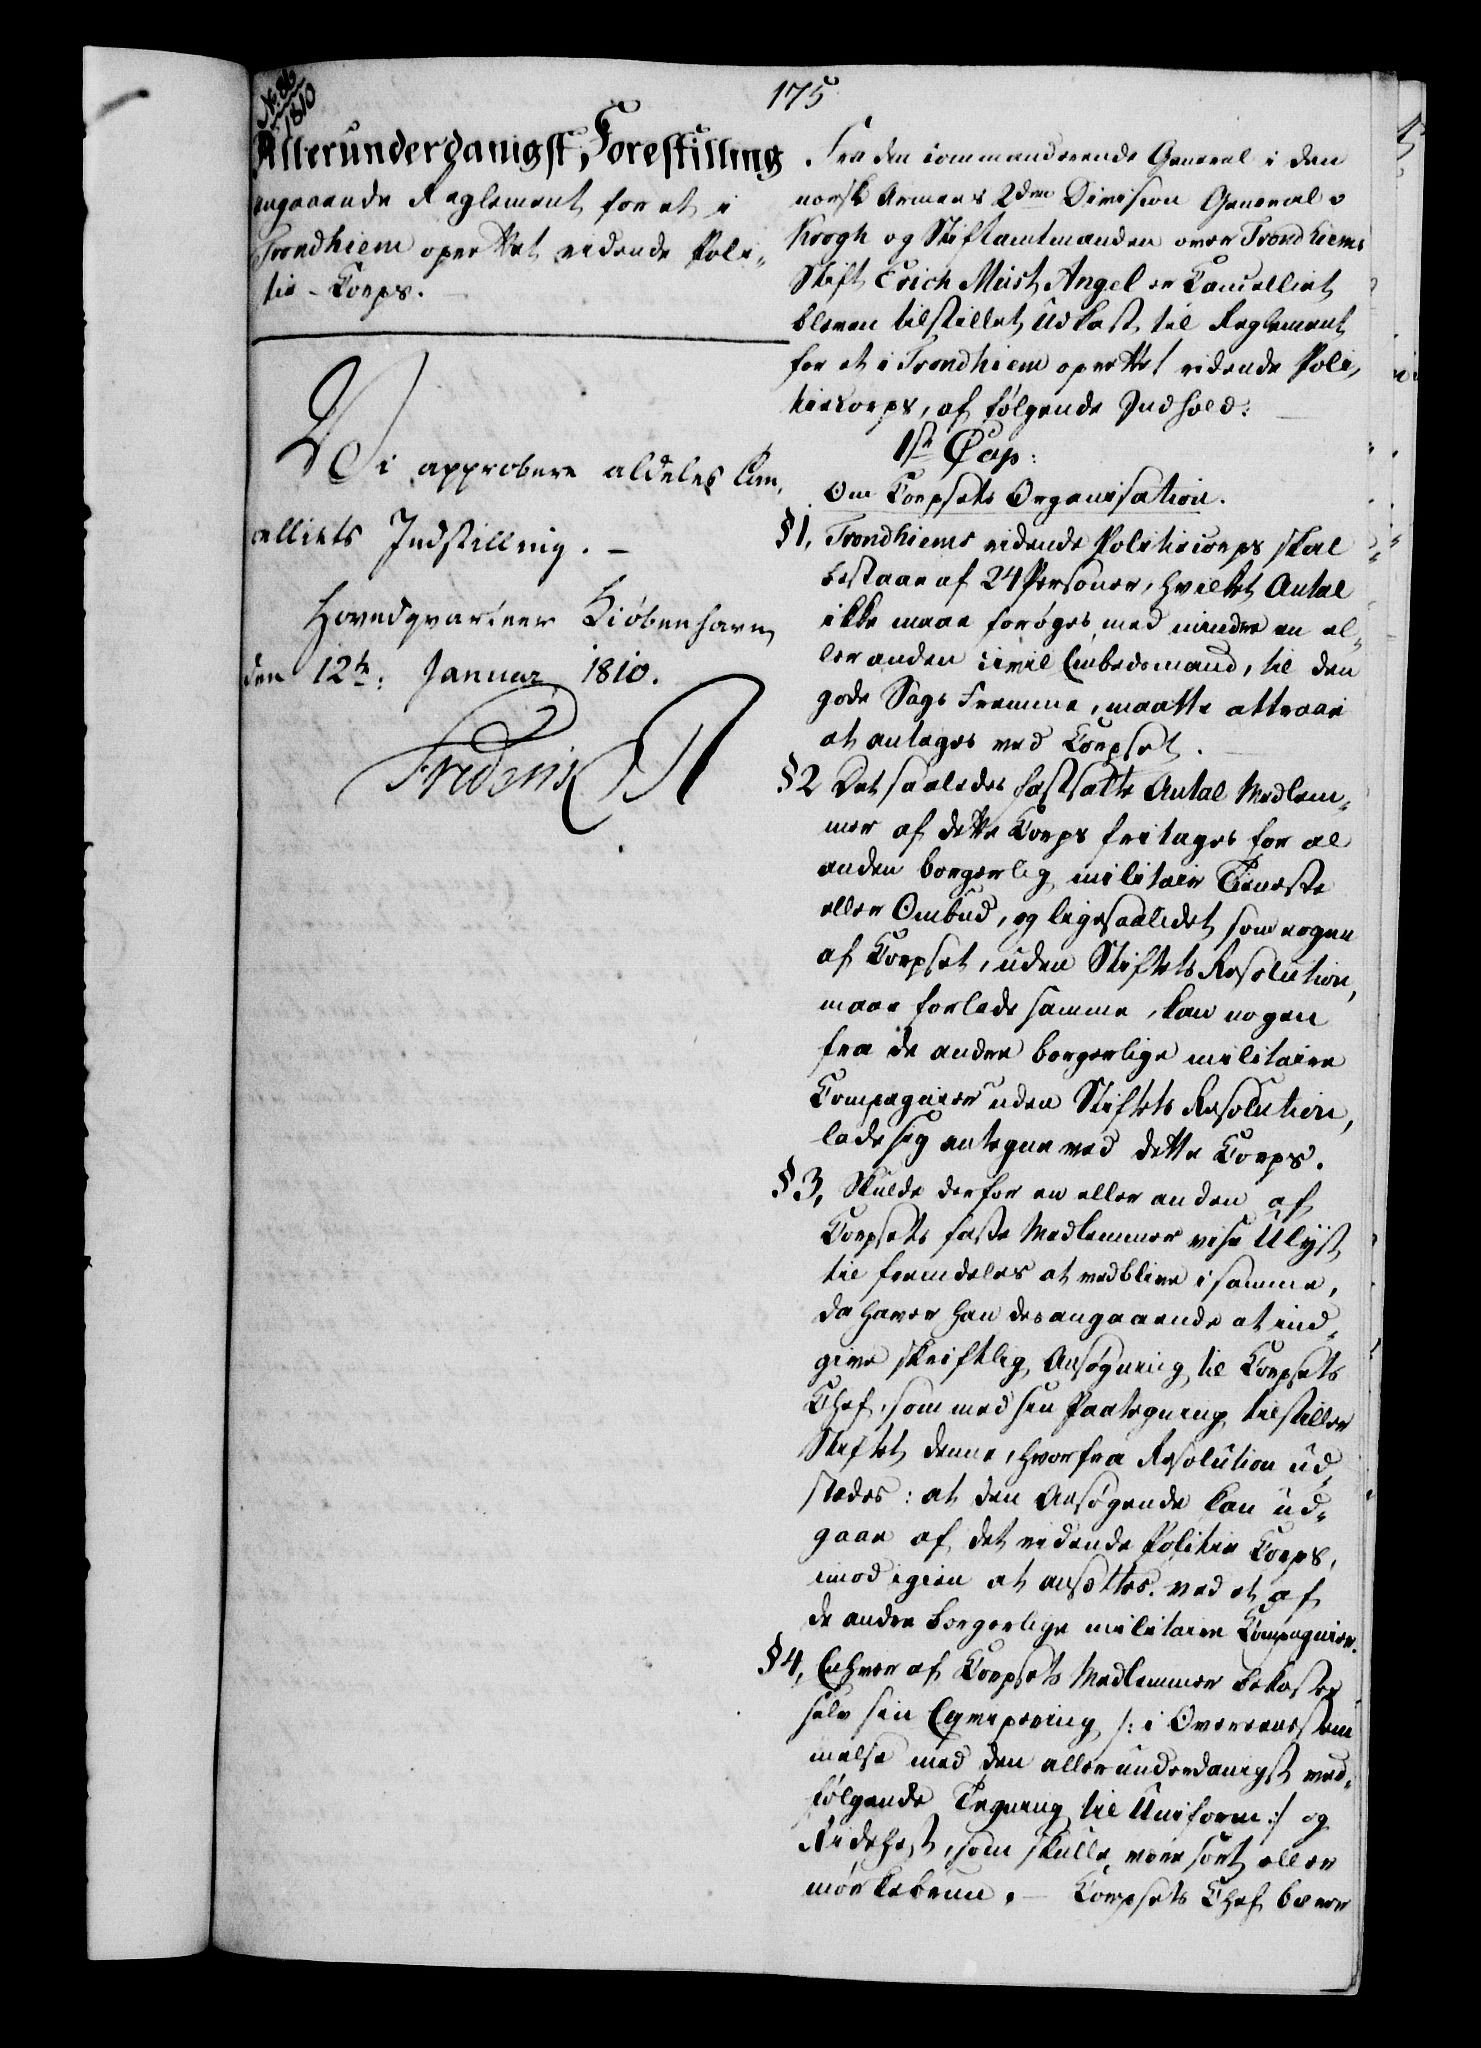 No. 86
1810
175
Allerunderdanigst Forestilling
angaaende Reglement for et i
Trondhiem oprettet ridende Poli-
tie-Corps.
Vi approbere aldeles Can-
celliets Indstilling. —
Hovedqvarteer Kiöbenhavn
den 12te: Januar 1810.
Frederik R
Fra den commanderende General i den
norske Armees 2den Division General v
Krogh og Stiftamtmanden over Trondhiems
Stift Erich Must Angel er Cancelliet
bleven tilstillet Udkast til Reglement
for et i Trondhiem oprettet ridende Poli-
tiecorps, af følgende Indhold:
1ste Cap:
Om Corpsets Organisation.
§1, Trondhiems ridende Politiecorps skal
bestaae af 24 Personer, hvilket Antal
ikke maae forøges, med mindre en el-
ler anden civil Embedsmand, til den
gode Sags Fremme, maatte attraae
at antages ved Corpset.
§2 Det saaledes fastsatte Antal Medlem-
mer af dette Corps fritages for al
anden borgerlig militair Tieneste
eller Ombud, og ligesaalidet som nogen
af Corpset, uden Stiftets Resolution,
maae forlade samme, kan nogen
fra de andre borgerlige militaire
Compagnier uden Stiftets Resolution,
lade sig antegne ved dette Corps.
§3, Skulde derfor en eller anden af
Corpsets faste Medlemmer vise Ulÿst
til fremdeles at vedblive i samme,
da haver han desangaaende at ind-
give skriftlig Ansøgning til Corpsets
Chef, som med sin Paategning tilstiller
Stiftet denne, hvorfra Resolution ud-
stædes: at den Ansøgende kan ud-
gaae af det ridende Politie Corps,
imod igien at ansættes ved et af
de andre borgerlige militaire Compagnier.
§4, Enhver af Corpsets Medlemmer bekoster
selv sin Eqvipering /: i Overeensstem
melse med den allerunderdanigst med-
følgende Tegning til Uniform :/ og
Ridehest, som skulle være sort eller
mørkebrun. — Corpsets Chef bærer